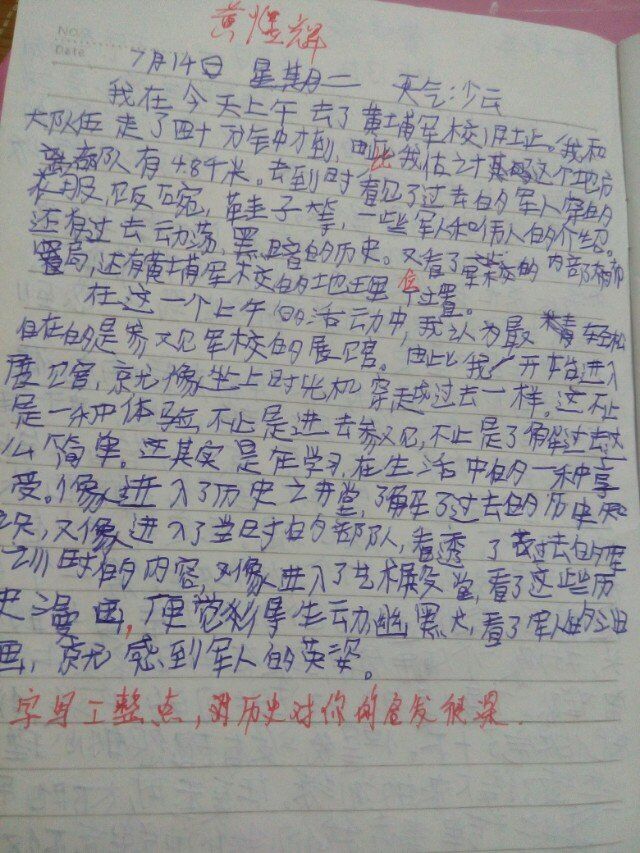 黄煜辉
NO.
Date
7月14日 星期二 天气:少云
我在今天上午去了黄埔军校旧址。我和
大队伍走了四十分钟才到,由此我估计基地这个地方
离部队有4.8千米。去到时,看见了过去的军人穿的
衣服,饭碗,鞋子等,一些军人和伟人的介绍。
还有过去动荡,黑暗的历史。又看了军校的内部布
置局,还有黄埔军校的地理位置。
在这一个上午的活动中,我认为最 轻松
自在的是参观军校的展馆。由此我一开始进入
展馆,就像坐上时光机穿越过去一样。这不止
是一种体验,不止是进去参观,不止是了解过去这
么简单。这其实是在学习,在生活中的一种享
受。像进入了历史之讲堂,了解了过去的历史知
识,又像进入了当时的部队,看透了 过去的军
训时的内容,又像进入了艺术展览堂,看了这些历
史漫画,便觉得生动幽默,看了军人的
画,就感到军人的英姿。
字写工整点,历史对你的启发很深.